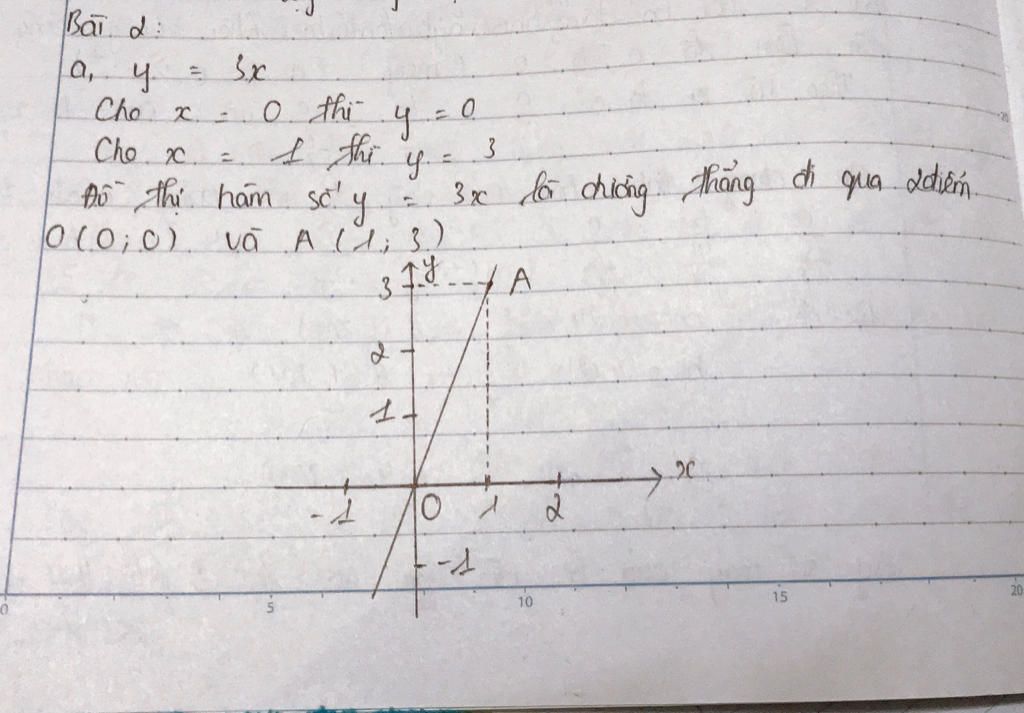 Bài 2:
a, y = 3x
Cho x = 0 thì y = 0
Cho x = 1 thì y = 3
Đồ thị hàm số y = 3x là đường thẳng đi qua 2 điểm
O(0; 0) và A (1; 3)
y
3 A
2
1
x
-1 O 1 2
-1
0 5 10 15 20